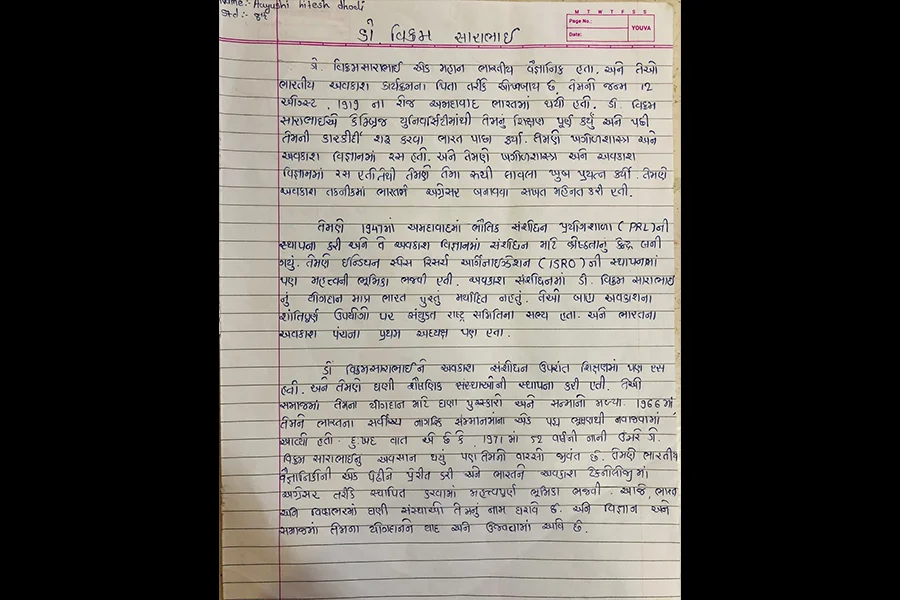 Name:- Aayushi hitesh dhodi
Std :- 8th
M T W T F S S
Page No.:
Date:
YOUVA
ડો. વિક્રમ સારાભાઈ
ડો. વિક્રમસારાભાઈ એક મહાન ભારતીય વૈજ્ઞાનિક હતા. અને તેઓ
ભારતીય અવકાશ કાર્યક્રમના પિતા તરીકે ઓળખાય છે. તેમની જન્મ 12
ઓગસ્ટ, 1919 ના રોજ અમદાવાદ ભારતમાં થયો હતી. ડો. વિક્રમ
સારાભાઈએ કેમ્બ્રિજ યુનિવર્સિટીમાંથી તેમનું શિક્ષણ પૂર્ણ કર્યું અને પછી
તેમની કારકીર્દી શરૂ કરવા ભારત પાછા ફર્યા. તેમણે ખગોળશાસ્ત્ર અને
અવકાશ વિજ્ઞાનમાં રસ હતી. અને તેમણે ખગોળશાસ્ત્ર અને અવકાશ
વિજ્ઞાનમાં રસ હતી તેથી તેમણે તેમા રુચી લાવવા ખુબ પ્રયત્ન કર્યો. તેમણે
અવકાશ તકનીકમાં ભારતને અગ્રેસર બનાવવા સખત મહેનત કરી હતી.
તેમણે 1947માં અમદાવાદમાં ભૌતિક સંશોધન પ્રયોગશાળા (PRL) ની
સ્થાપના કરી અને તે અવકાશ વિજ્ઞાનમાં સંશોધન માટે શ્રેષ્ઠતાનું કેન્દ્ર બની
ગયું. તેમણે ઈન્ડિયન સ્પેસ રિસર્ચ ઓર્ગેનાઈઝેશન (ISRO) ની સ્થાપનામાં
પણ મહત્ત્વની ભૂમિકા ભજવી હતી. અવકાશ સંશોધનમાં ડો. વિક્રમ સારાભાઈ
નું યોગદાન માત્ર ભારત પુરતું મર્યાદિત નહતું. તેઓ બાહ્ય અવકાશના
શાંતિપૂર્ણ ઉપયોગો પર સંયુક્ત રાષ્ટ્ર સમિતિના સભ્ય હતા. અને ભારતના
અવકાશ પંચના પ્રથમ અધ્યક્ષ પણ હતા.
ડો વિક્રમસારાભાઈને અવકાશ સંશોધન ઉપરાંત શિક્ષણમાં પણ રસ
હતી. અને તેમણે ઘણી શૈક્ષણિક સંસ્થાઓની સ્થાપના કરી હતી. તેઓ
સમાજમાં તેમના યોગદાન માટે ઘણા પુરસ્કારો અને સન્માનો મળ્યા. 1966માં
તેમને ભારતના સર્વોચ્ચ નાગરિક સન્માનમાંના એક પદ્મ ભૂષણથી નવાજવામાં
આવ્યા હતી. દુ:ખદ વાત એ છે કે, 1971માં 52 વર્ષની નાની ઉંમરે ડો.
વિક્રમ સારાભાઈનું અવસાન થયું પણ તેમની વારસો જીવંત છે. તેમણે ભારતીય
વૈજ્ઞાનિકોની એક પેઢીને પ્રેરીત કરી અને ભારતને અવકાશ ટેકનોલોજીમાં
અગ્રેસર તરીકે સ્થાપિત કરવામાં મહત્ત્વપૂર્ણ ભૂમિકા ભજવી. આજે, ભારત
અને વિશ્વભરમાં ઘણી સંસ્થાઓ તેમનું નામ ધરાવે છે. અને વિજ્ઞાન અને
સમાજમાં તેમના યોગદાનને યાદ અને ઉજવવામાં આવે છે.